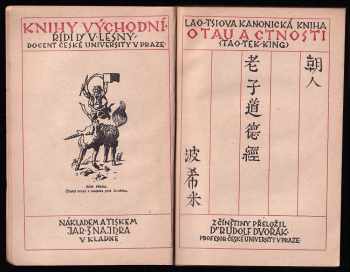 KNIHY VÝCHODNÍ·
ŘÍDÍ Dʀ V·LESNÝ·
DOCENT ČESKÉ UNIVERSITY V PRAZE·
NÁKLADEM A TISKEM
JAR·ŠNAJDRA
V KLADNĚ
LAO-TSIOVA KANONICKÁ KNIHA
O TAU A CTNOSTI
(TAO-TEK-KING)
朝人
老子道德經
波希米
Z ČÍNŠTINY PŘELOŽIL
Dʀ RUDOLF DVOŘÁK·
PROFESOR ČESKÉ UNIVERSITY V PRAZE·